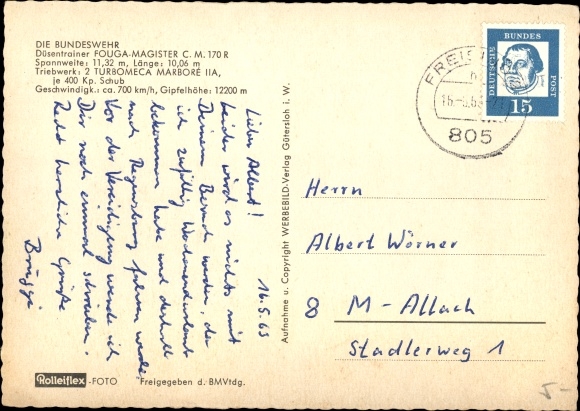 DIE BUNDESWEHR
Düsentrainer FOUGA-MAGISTER C. M. 170 R
Spannweite: 11,32 m, Länge: 10,06 m
Triebwerk: 2 TURBOMECA MARBORÉ IIA,
je 400 Kp. Schub
Geschwindigk.: ca. 700 km/h, Gipfelhöhe: 12200 m
16.5.63
Lieber Albert!
Leider wird es nichts mit
Deinem Besuch werden, da
ich zufällig Wochenendurlaub
bekommen habe und deshalb
nach Regensburg fahren werde.
Vor der Vereidigung werde ich
Dir noch einmal schreiben.
Recht herzliche Grüße
Brüggi
Rolleiflex-FOTO
"Freigegeben d. BMVtdg.
Aufnahme u. Copyright WERBEBILD-Verlag Gütersloh i. W.
DEUTSCHE BUNDES POST
15
FREISI
805
Herrn
Albert Wörner
8 M-Allach
Stadlerweg 1
5-